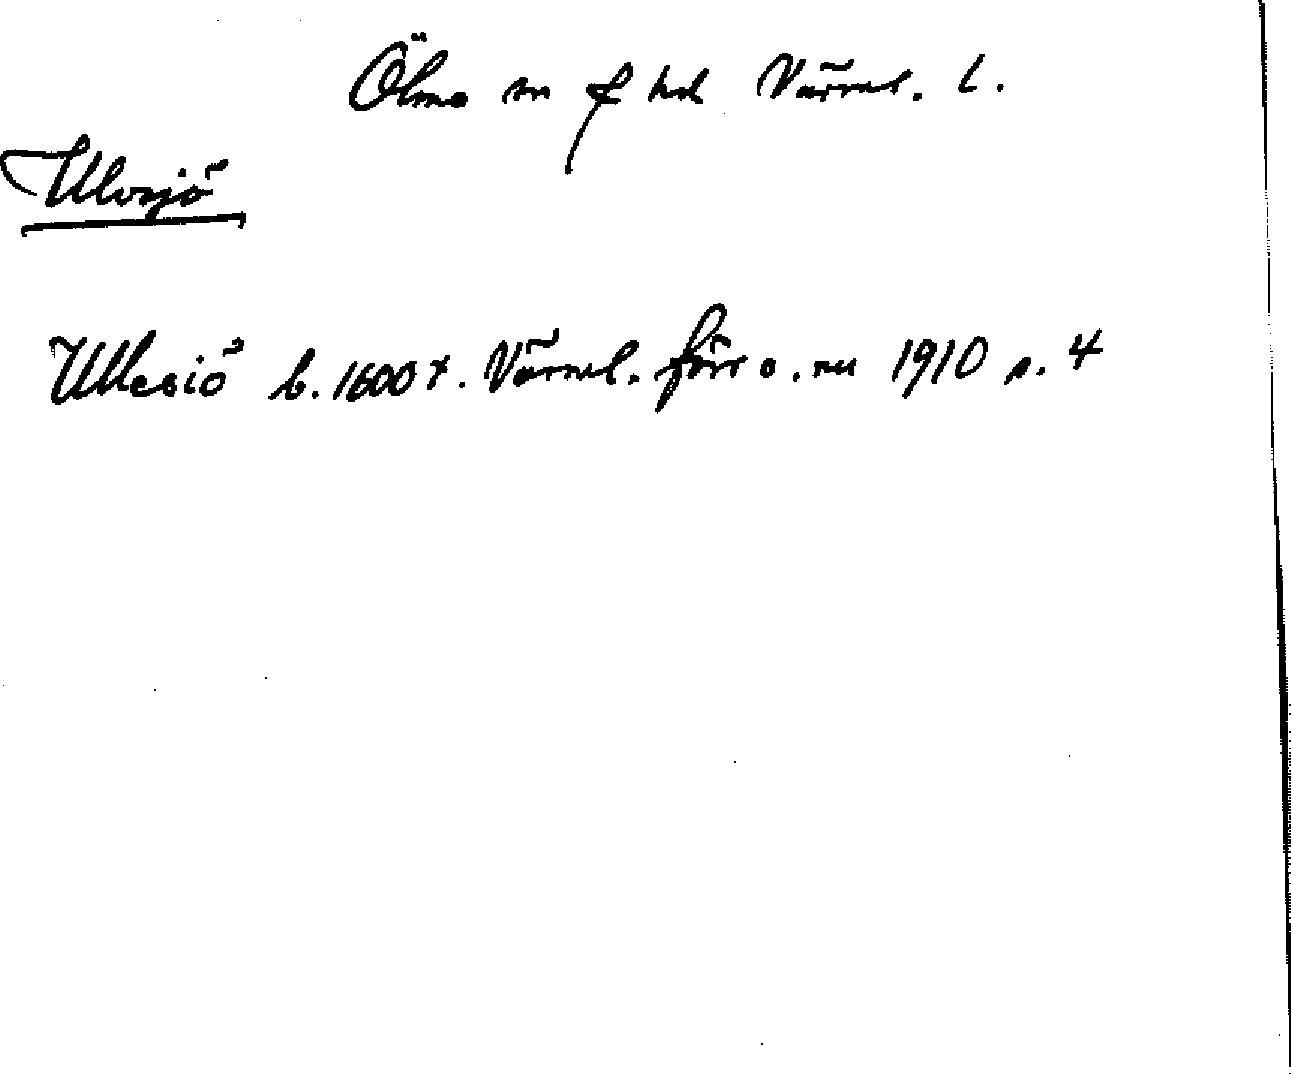 Ölme sn f hd Värml. l.
Ulvsjö
Ullesiö b. 1600 t. Värml. förr o. nu 1910 s. 4